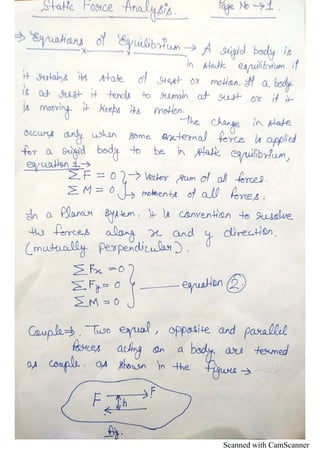 Static Force Analysis. Page No → 1.
⇒ Equations of Equilibrium → A rigid body is
in static equilibrium if
it retains its state of rest or motion. If a body
is at rest it tends to remain at rest or if it
is moving it keeps its motion.
The change in state
occurs only when some external force is applied
for a rigid body to be in static equilibrium,
equation 1 →
ΣF = 0 } → Vector sum of all forces.
ΣM = 0 → moments of all forces.
In a Planar System. it is convention to resolve
the forces along x and y direction.
(mutually perpendicular).
ΣFx = 0
ΣFy = 0 } equation 2.
ΣM = 0
Couple ⇒. Two equal, opposite and parallel
forces acting on a body are termed
as couple. as shown in the figure →
F F
h
fig.
Scanned with CamScanner